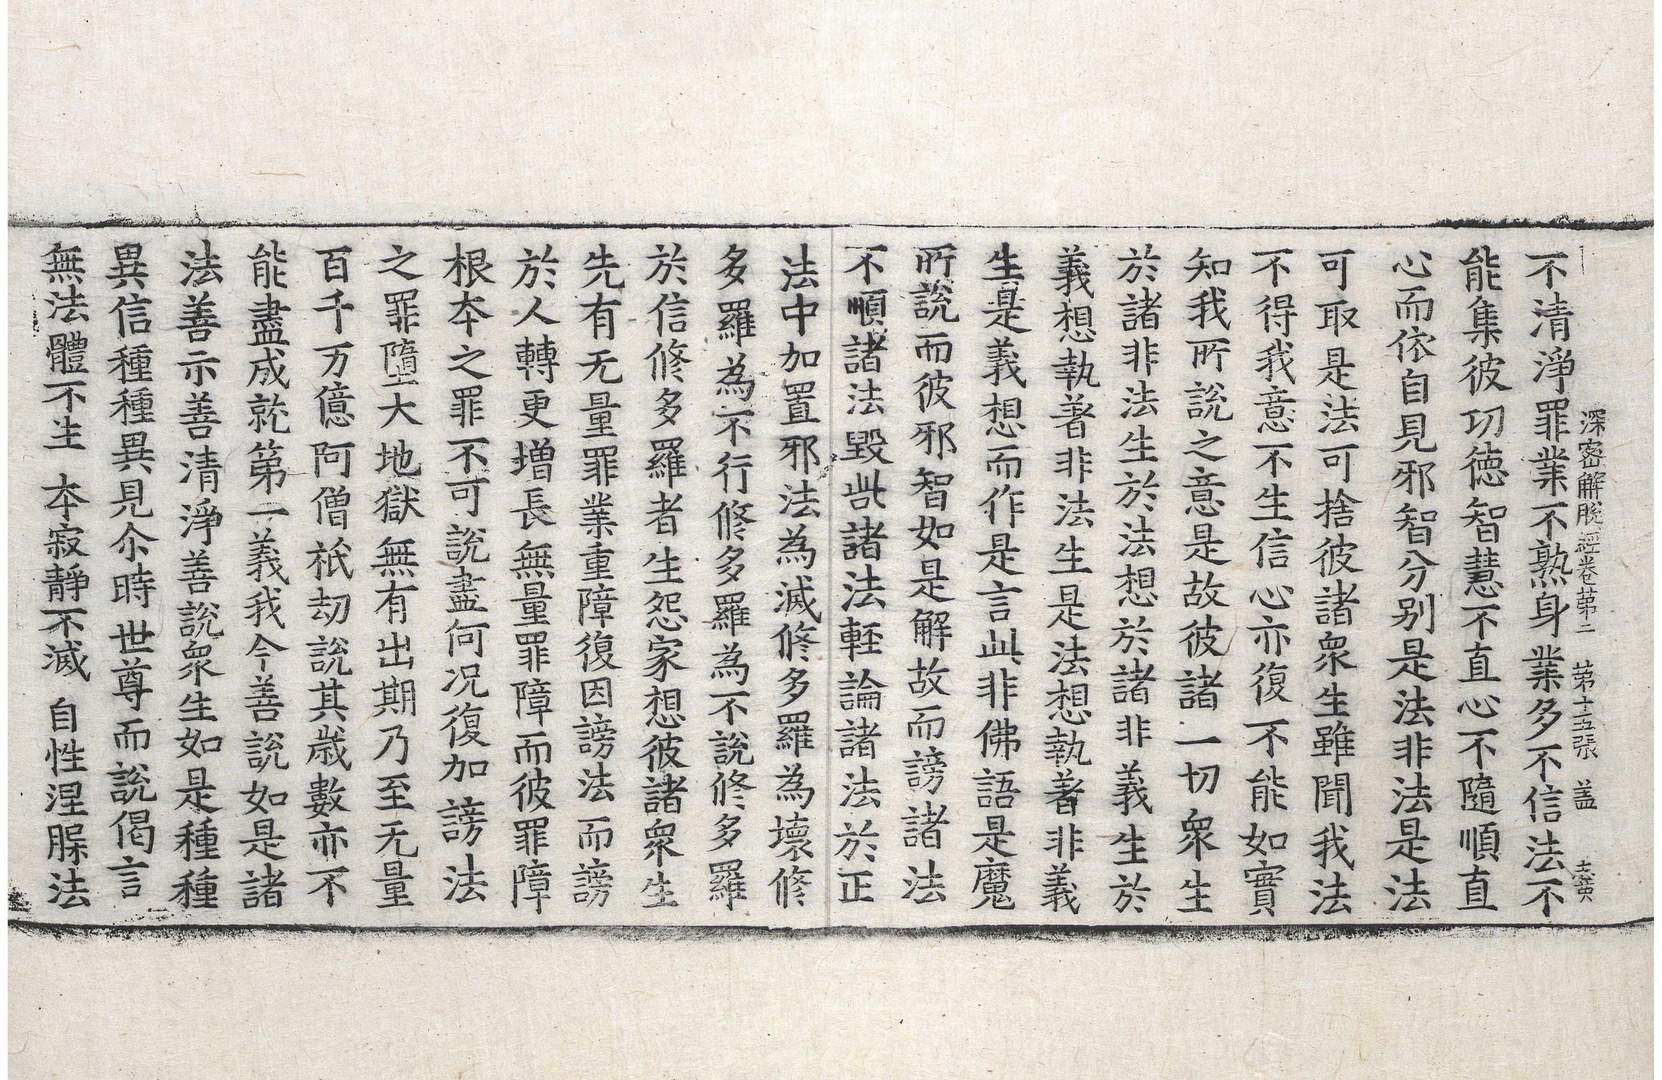 深密解脫經卷第二 第十五張 盖
不清淨罪業不熟身業多不信法不
能集彼功德智慧不直心不隨順直
心而依自見邪智分別是法非法是法
可取是法可捨彼諸眾生雖聞我法
不得我意不生信心亦復不能如實
知我所說之意是故彼諸一切眾生
於諸非法生於法想於諸非義生於
義想執著非法生是法想執著非義
生是義想而作是言此非佛語是魔
所說而彼邪智如是解故而謗諸法
不順諸法毀呰諸法輕論諸法於正
法中加置邪法為滅修多羅為壞修
多羅為不行修多羅為不說修多羅
於信修多羅者生怨家想彼諸眾生
先有无量罪業重障復因謗法而謗
於人轉更增長無量罪障而彼罪障
根本之罪不可說盡何況復加謗法
之罪墮大地獄無有出期乃至无量
百千万億阿僧祇劫說其歲數亦不
能盡成就第一義我今善說如是諸
法善示善清淨善說眾生如是種種
異信種種異見尒時世尊而說偈言
無法體不生 本寂靜不滅 自性涅槃法